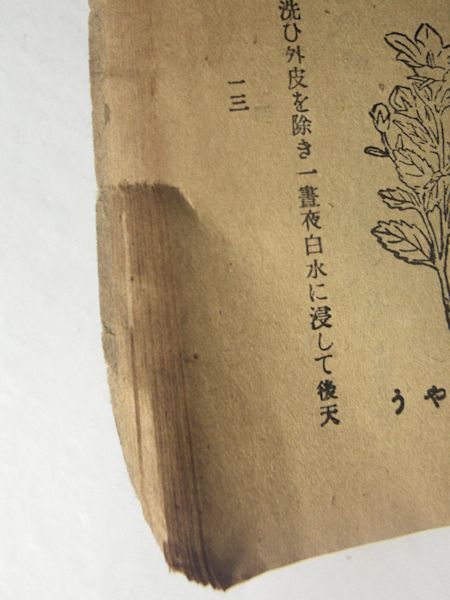 やう
洗ひ外皮を除き一晝夜白水に浸して後天
一三